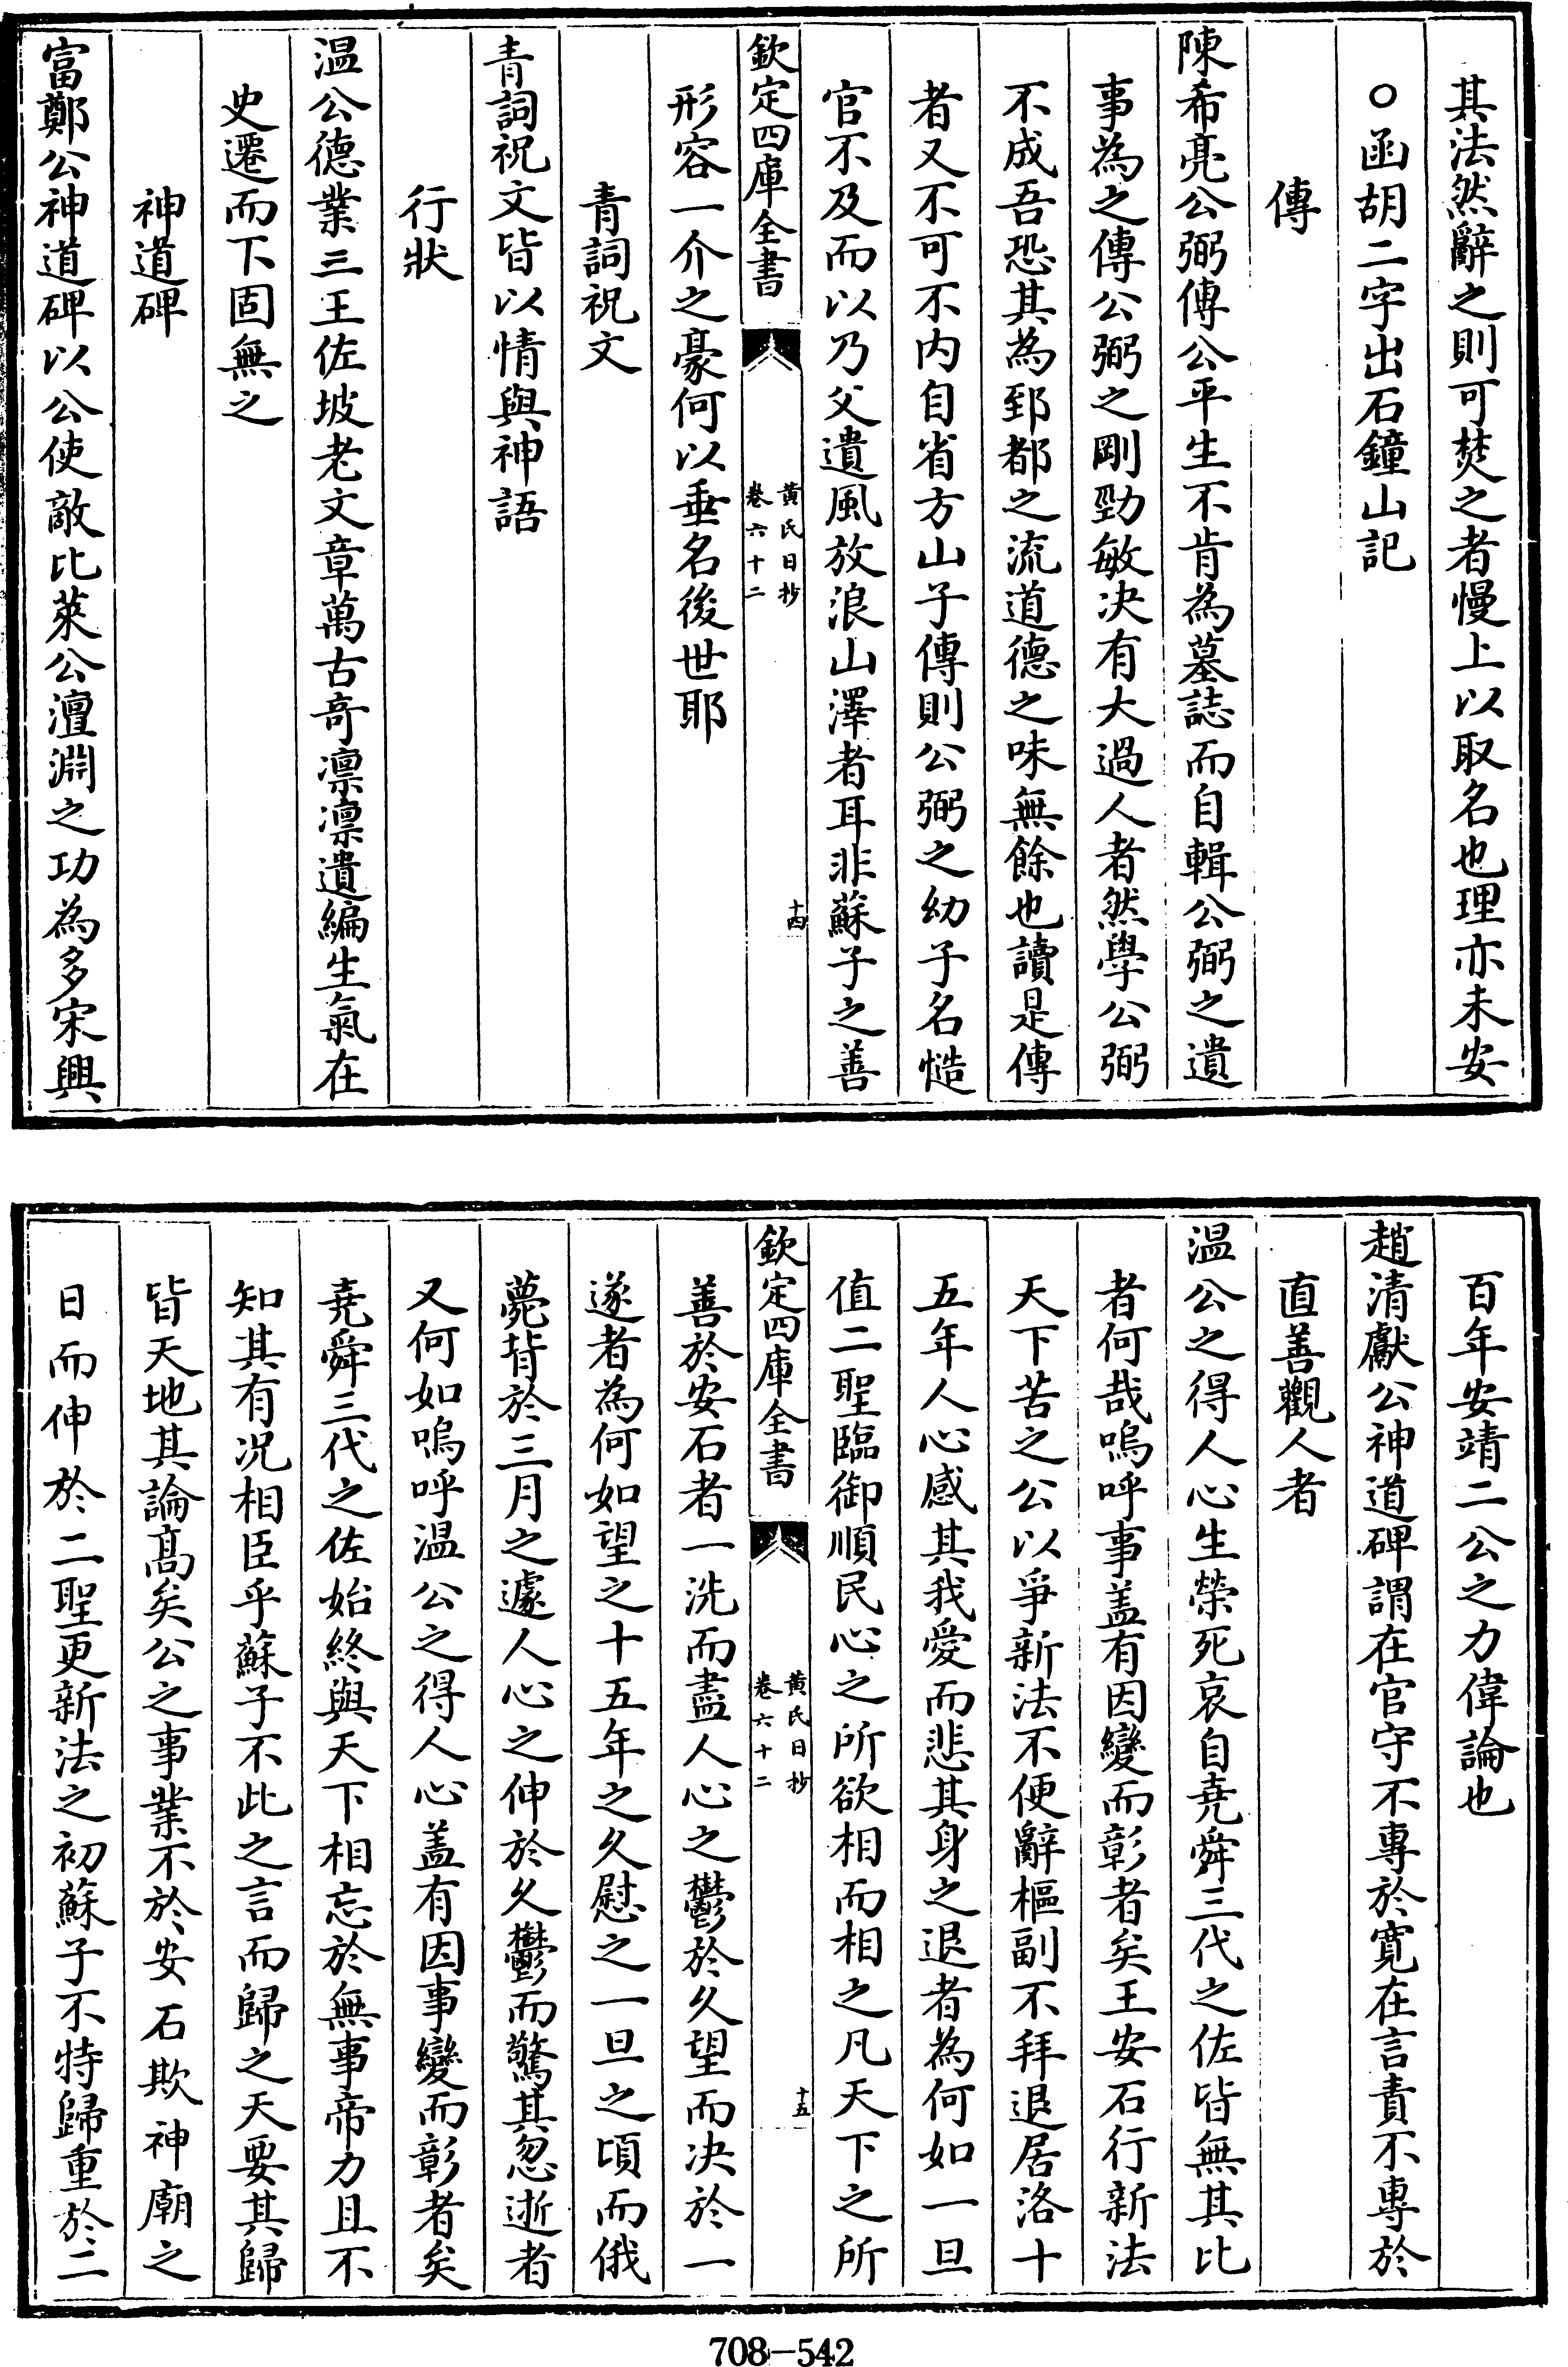 其法然辭之則可焚之者慢上以取名也理亦未安
○函胡二字出石鐘山記
傳
陳希亮公弼傳公平生不肯為墓誌而自輯公弼之遺
事為之傳公弼之剛勁敏決有大過人者然學公弼
不成吾恐其為郅都之流道德之味無餘也讀是傳
者又不可不内自省方山子傳則公弼之幼子名慥
官不及而以乃父遺風放浪山澤者耳非蘇子之善
欽定四庫全書
黃氏日抄
卷六十二
十四
形容一介之豪何以垂名後世耶
青詞祝文
青詞祝文皆以情與神語
行狀
温公德業三王佐坡老文章萬古奇凛凛遺編生氣在
史遷而下固無之
神道碑
富鄭公神道碑以公使敵比萊公澶淵之功為多宋興
百年安靖二公之力偉論也
趙清獻公神道碑謂在官守不專於寛在言責不專於
直善觀人者
温公之得人心生榮死哀自堯舜三代之佐皆無其比
者何哉嗚呼事盖有因變而彰者矣王安石行新法
天下苦之公以爭新法不便辭樞副不拜退居洛十
五年人心感其我愛而悲其身之退者為何如一旦
值二聖臨御順民心之所欲相而相之凡天下之所
欽定四庫全書
黃氏日抄
卷六十二
十五
善於安石者一洗而盡人心之鬱於久望而決於一
遂者為何如望之十五年之久慰之一旦之頃而俄
薨背於三月之遽人心之伸於久鬱而驚其忽逝者
又何如嗚呼温公之得人心盖有因事變而彰者矣
堯舜三代之佐始終與天下相忘於無事帝力且不
知其有况相臣乎蘇子不此之言而歸之天要其歸
皆天地其論髙矣公之事業不於安石欺神廟之
日而伸於二聖更新法之初蘇子不特歸重於二